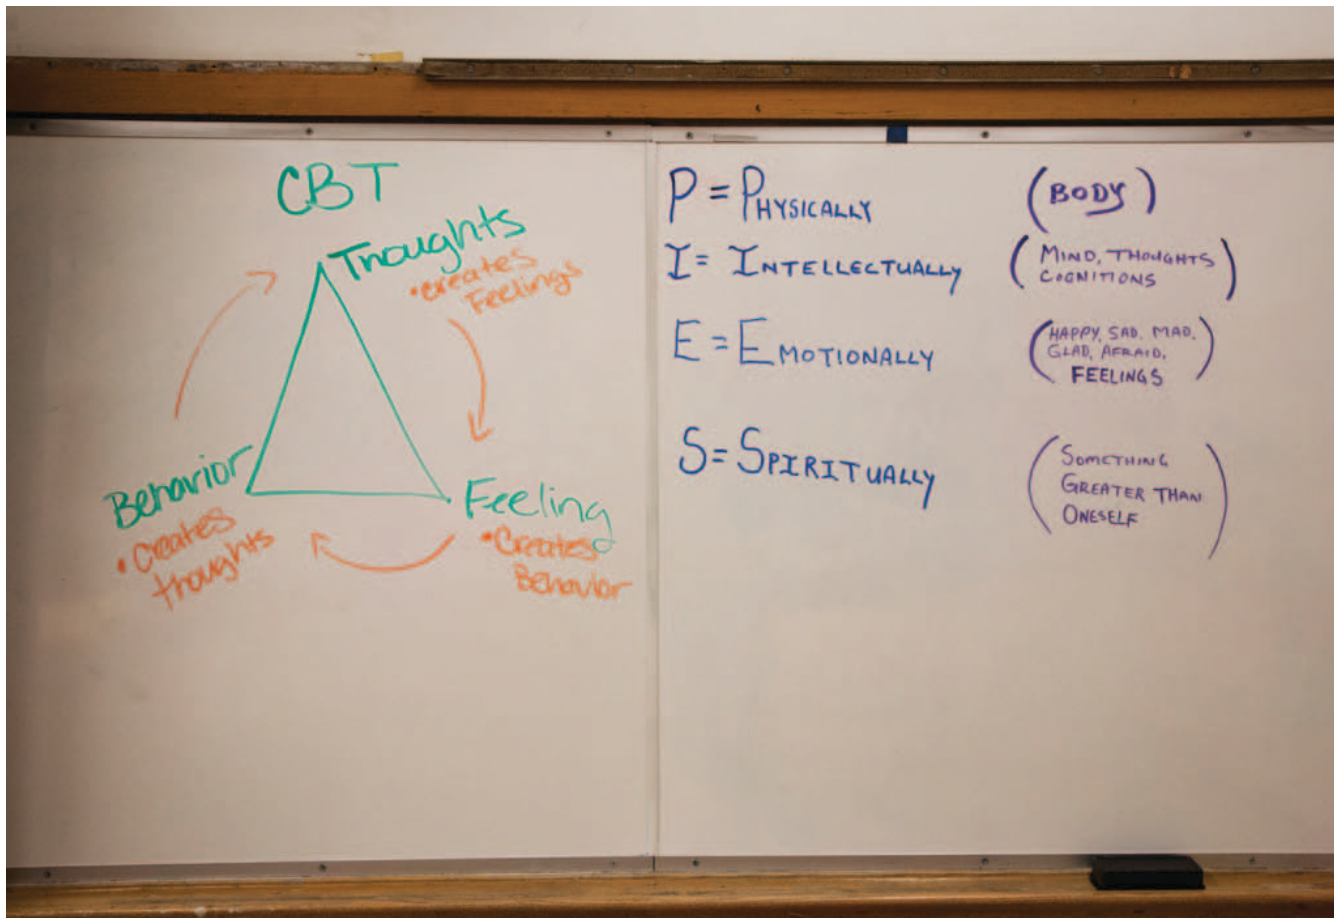 CBT
Thoughts
•creates
Feelings
Behavior
•Creates
thoughts
Feeling
•Creates
Behavior
P = PHYSICALLY (BODY)
I = INTELLECTUALLY (MIND, THOUGHTS
COGNITIONS)
E = EMOTIONALLY (HAPPY, SAD, MAD,
GLAD, AFRAID,
FEELINGS)
S = SPIRITUALLY (SOMETHING
GREATER THAN
ONESELF)